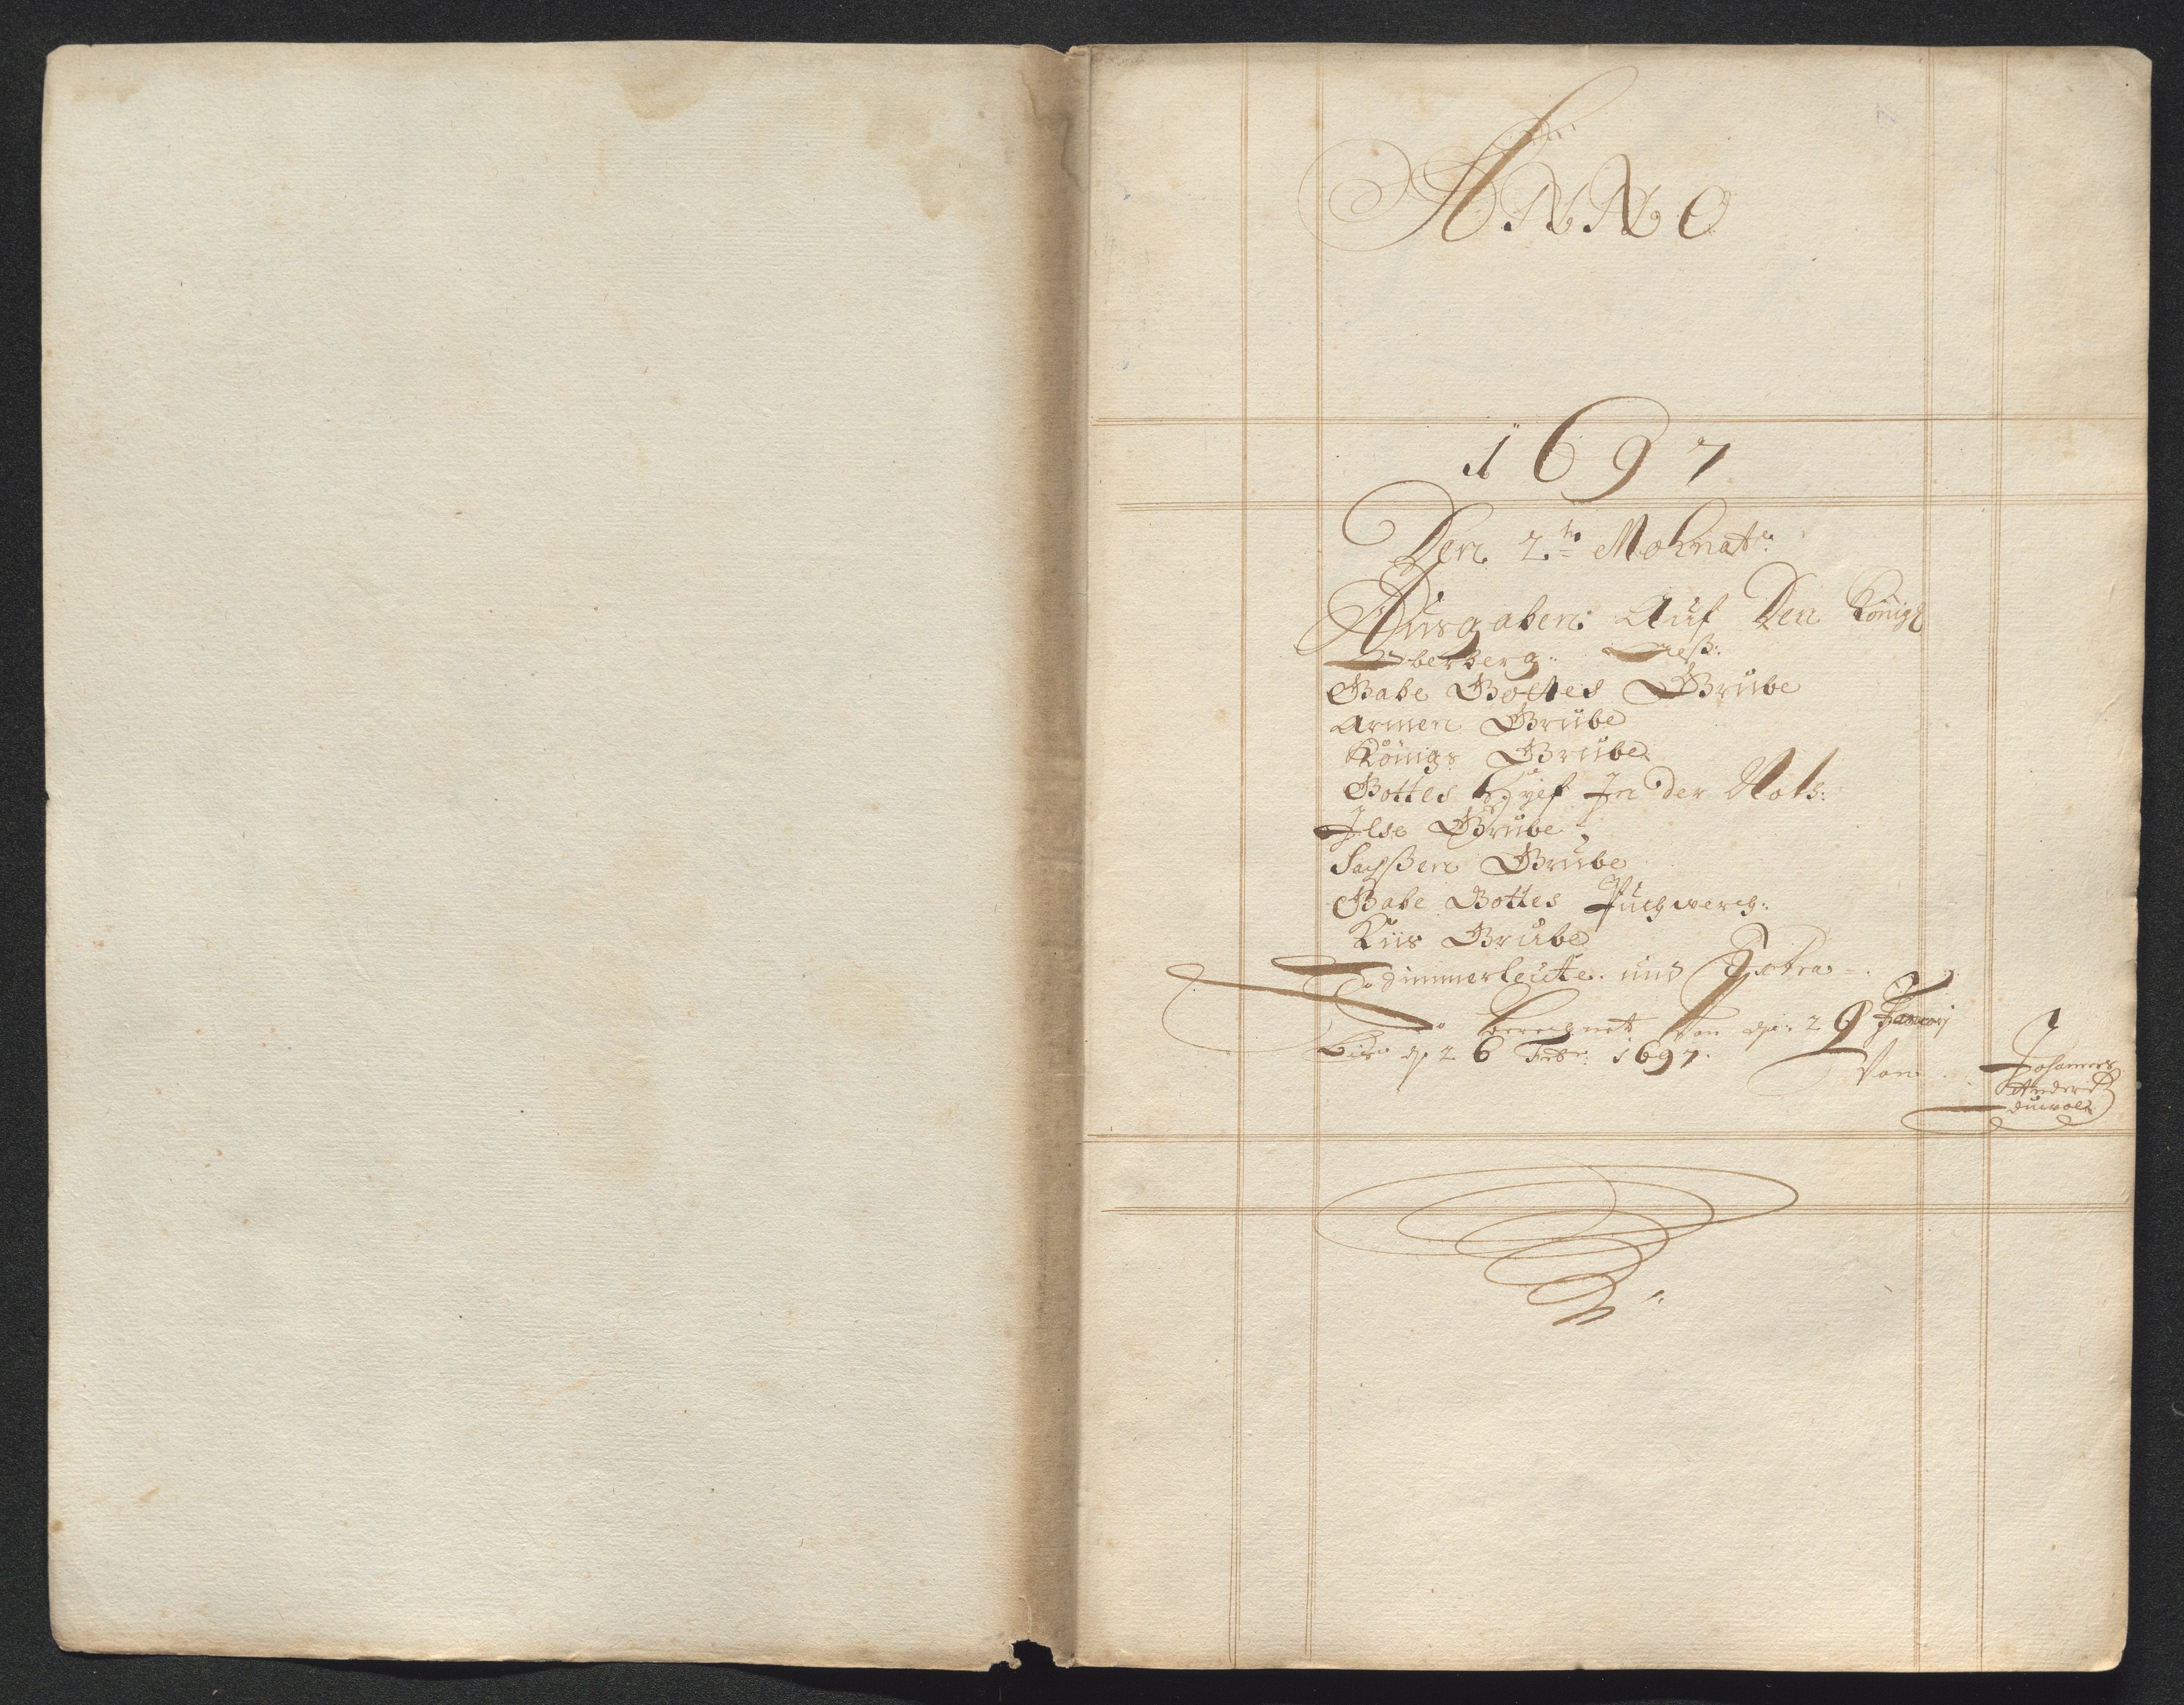 ANNO
1697
Den 2te Mohnat:
Ausgaben: Auf Den Königs
Oberberg:
Gabe Gottes Grube
Armen Grube
Königs Grube
Gottes Hylf In der Noth:
Ilse Grube
Sachßen Grube
Gabe Gottes Puchwerch:
Grube
Zimmerleute. und
berechnett Von 29 January
Biß 26 Febr: 1697.
Von
Johannes